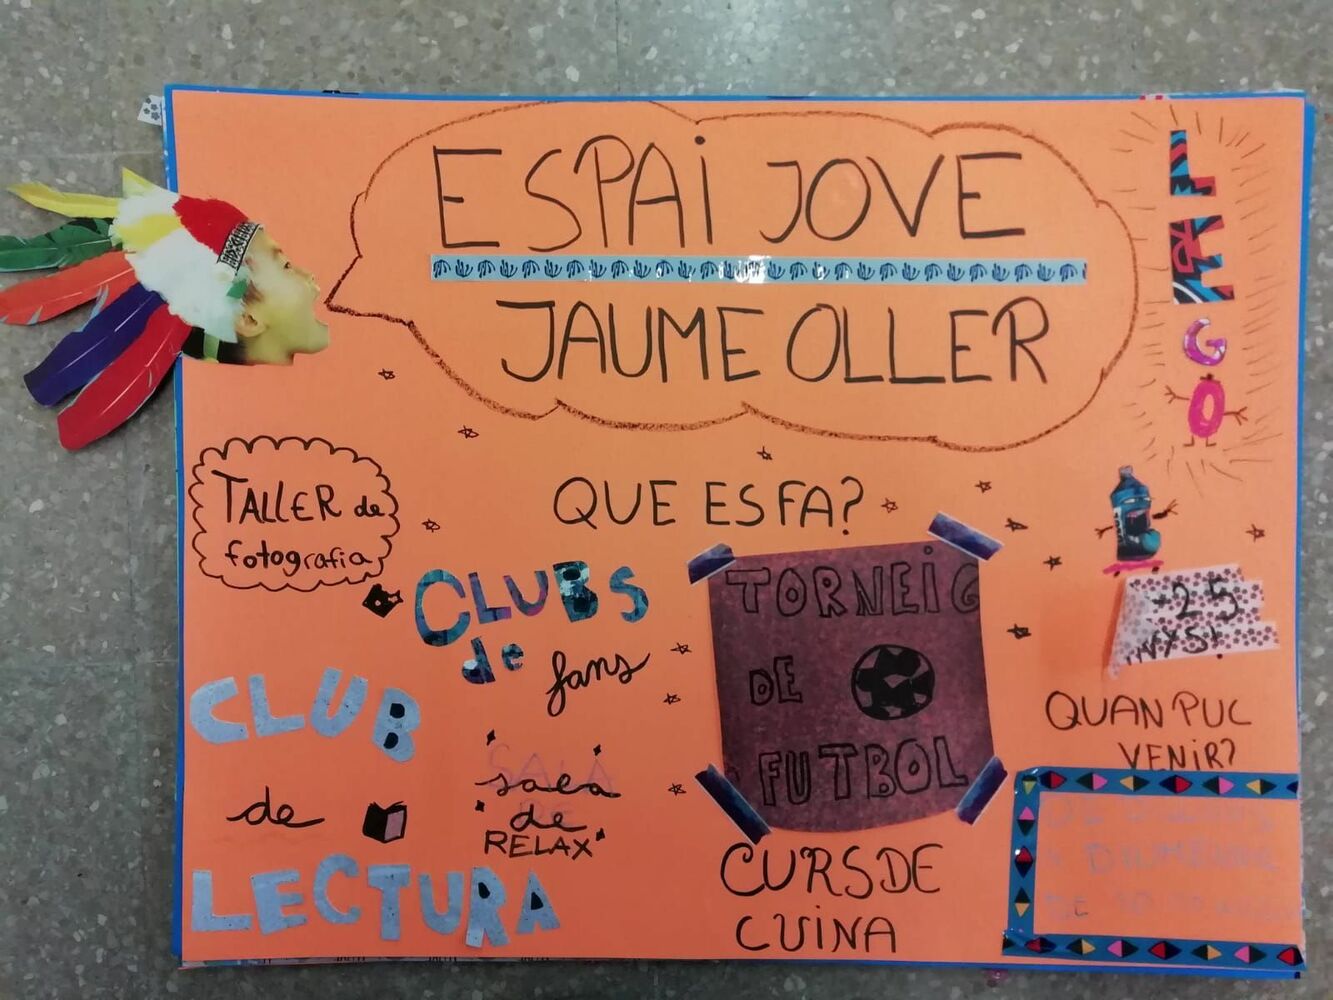 ESPAI JOVE
JAUME OLLER
LEGO
TALLER de
fotografia
QUE ES FA?
CLUBS
de
fans
TORNEIG
DE
FUTBOL
-25
ANYS!
CLUB
de
LECTURA
sala
de
RELAX
CURS DE
CUINA
QUAN PUC
VENIR?